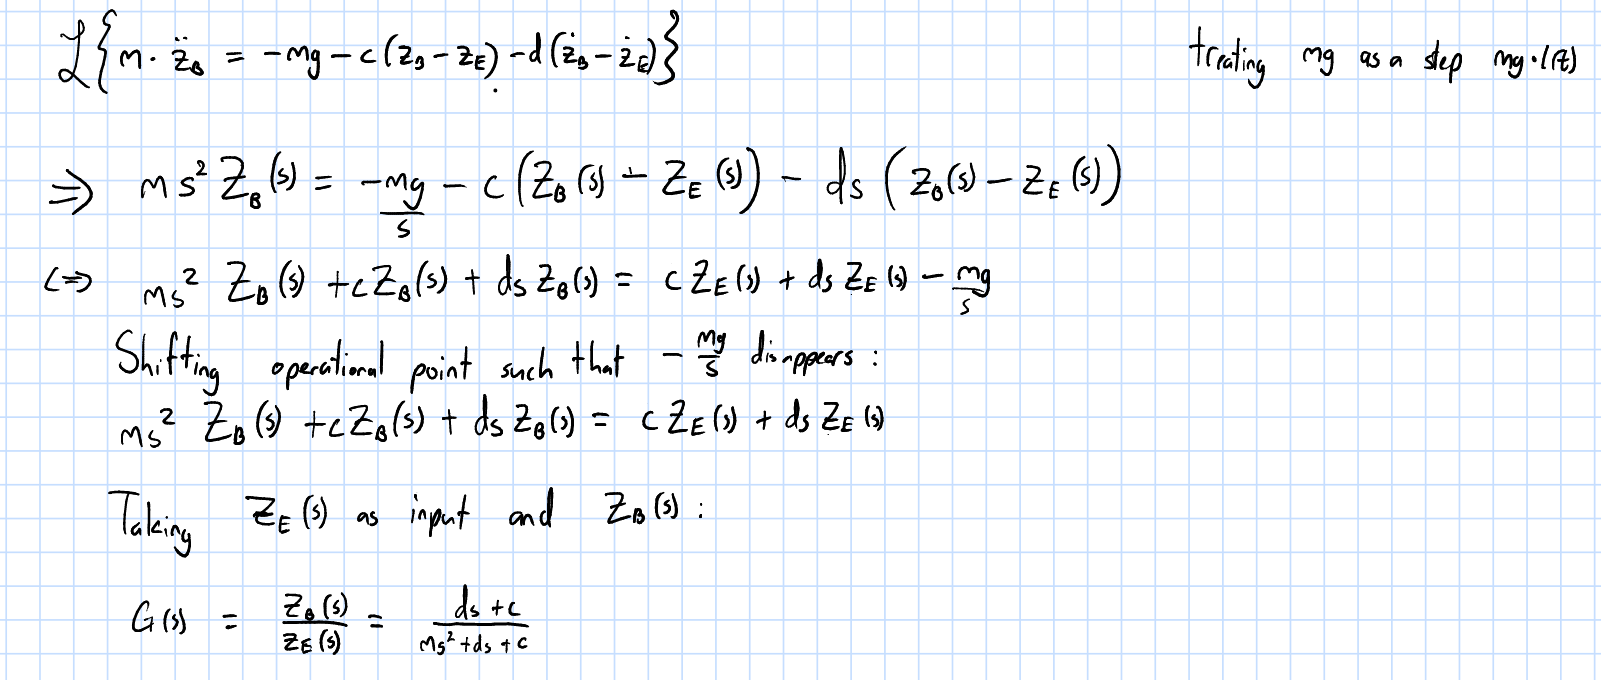 ℒ{m · z̈_B = −mg − c(z_B − z_E) − d(ż_B − ż_E)}
treating mg as a step mg·1(t)
⇒ ms² Z_B(s) = −mg/s − c(Z_B(s) − Z_E(s)) − ds(Z_B(s) − Z_E(s))
⇔ ms² Z_B(s) + cZ_B(s) + ds Z_B(s) = c Z_E(s) + ds Z_E(s) − mg/s
Shifting operational point such that − mg/s disappears:
ms² Z_B(s) + cZ_B(s) + ds Z_B(s) = c Z_E(s) + ds Z_E(s)
Taking Z_E(s) as input and Z_B(s):
G(s) = Z_B(s)/Z_E(s) = (ds + c)/(ms² + ds + c)